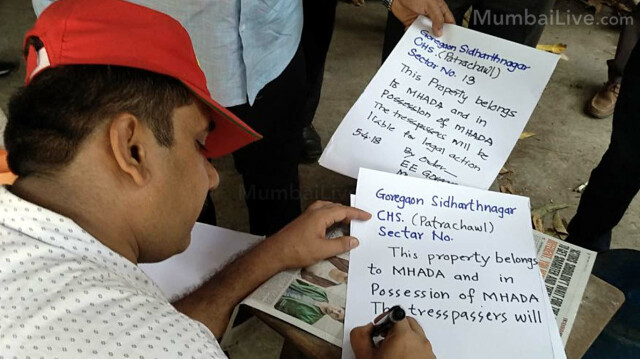 MumbaiLive.com
Goregaon Sidharthnagar
CHS. (Patrachawl)
Sector No. 13
This Property belongs
to MHADA and in
Possession of MHADA
The tresspassers will be
liable for legal action
5-4-18
By Order
EE
Goregaon Sidharthnagar
CHS. (Patrachawl)
Sectar No.
This property belongs
to MHADA and in
Possession of MHADA
The tresspassers will
MumbaiLive